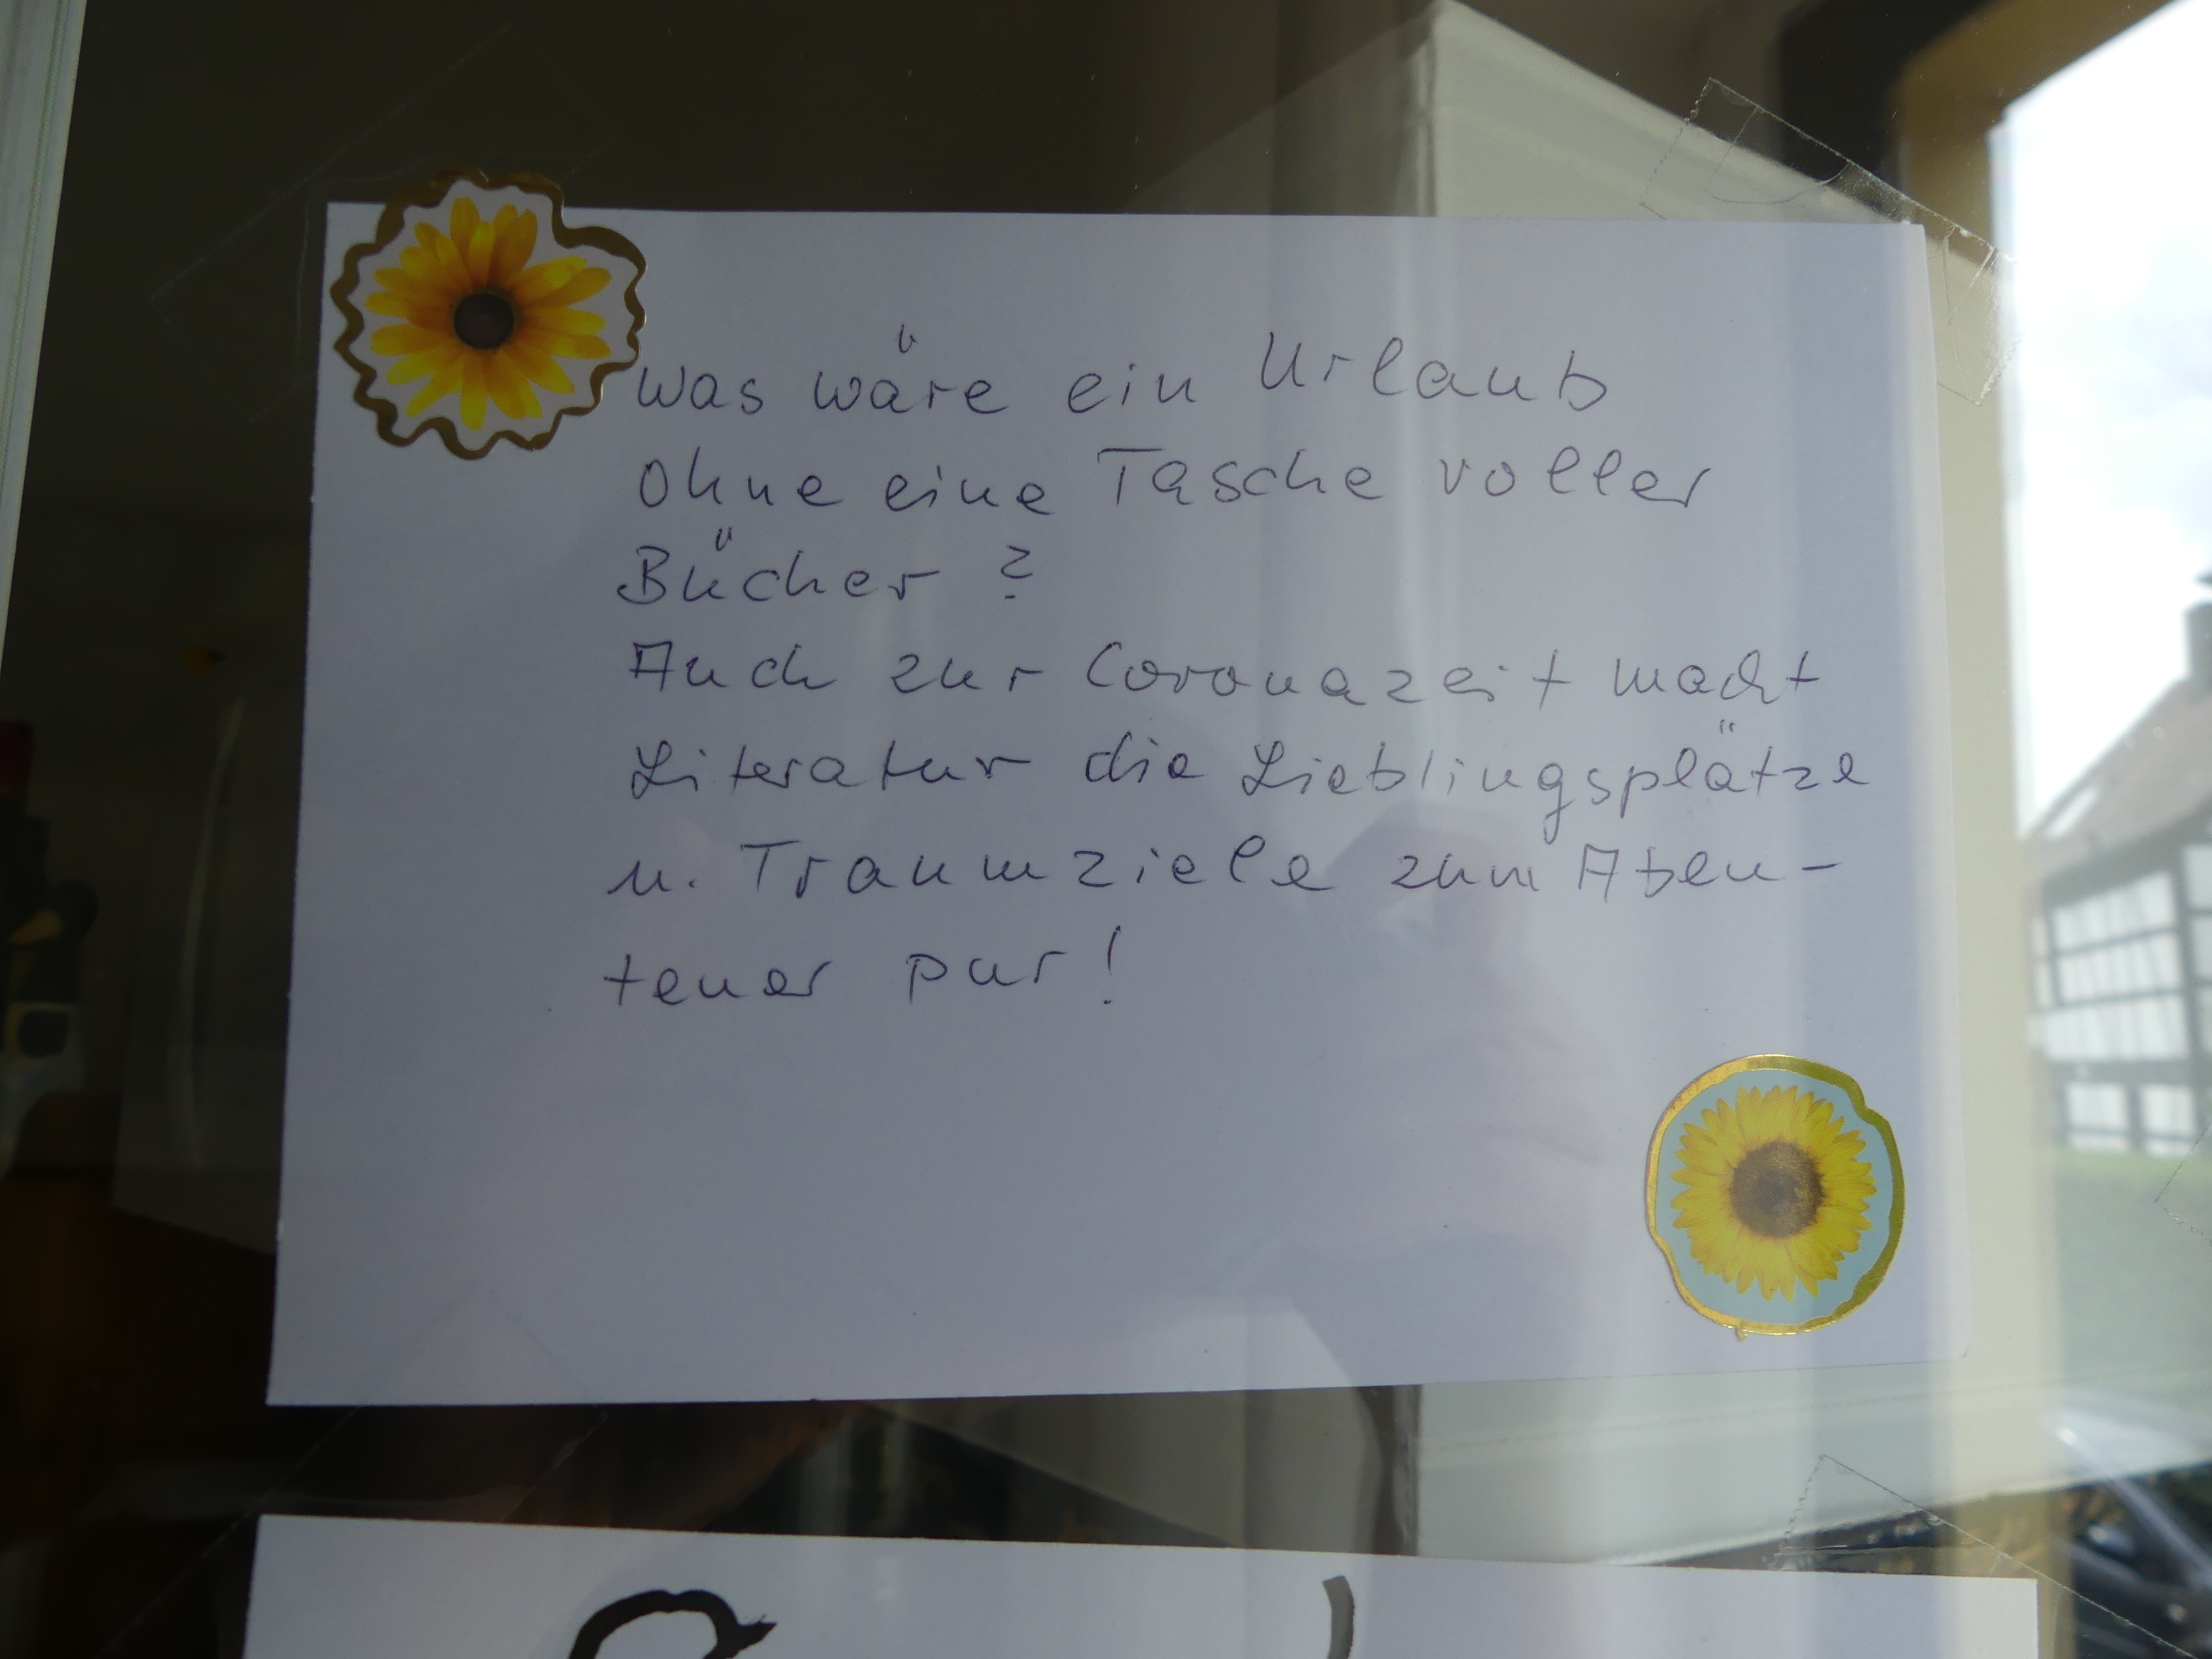 Was wäre ein Urlaub
ohne eine Tasche voller
Bücher?
Auch zur Coronazeit macht
Literatur die Lieblingsplätze
u. Traumziele zum Aben-
teuer pur!